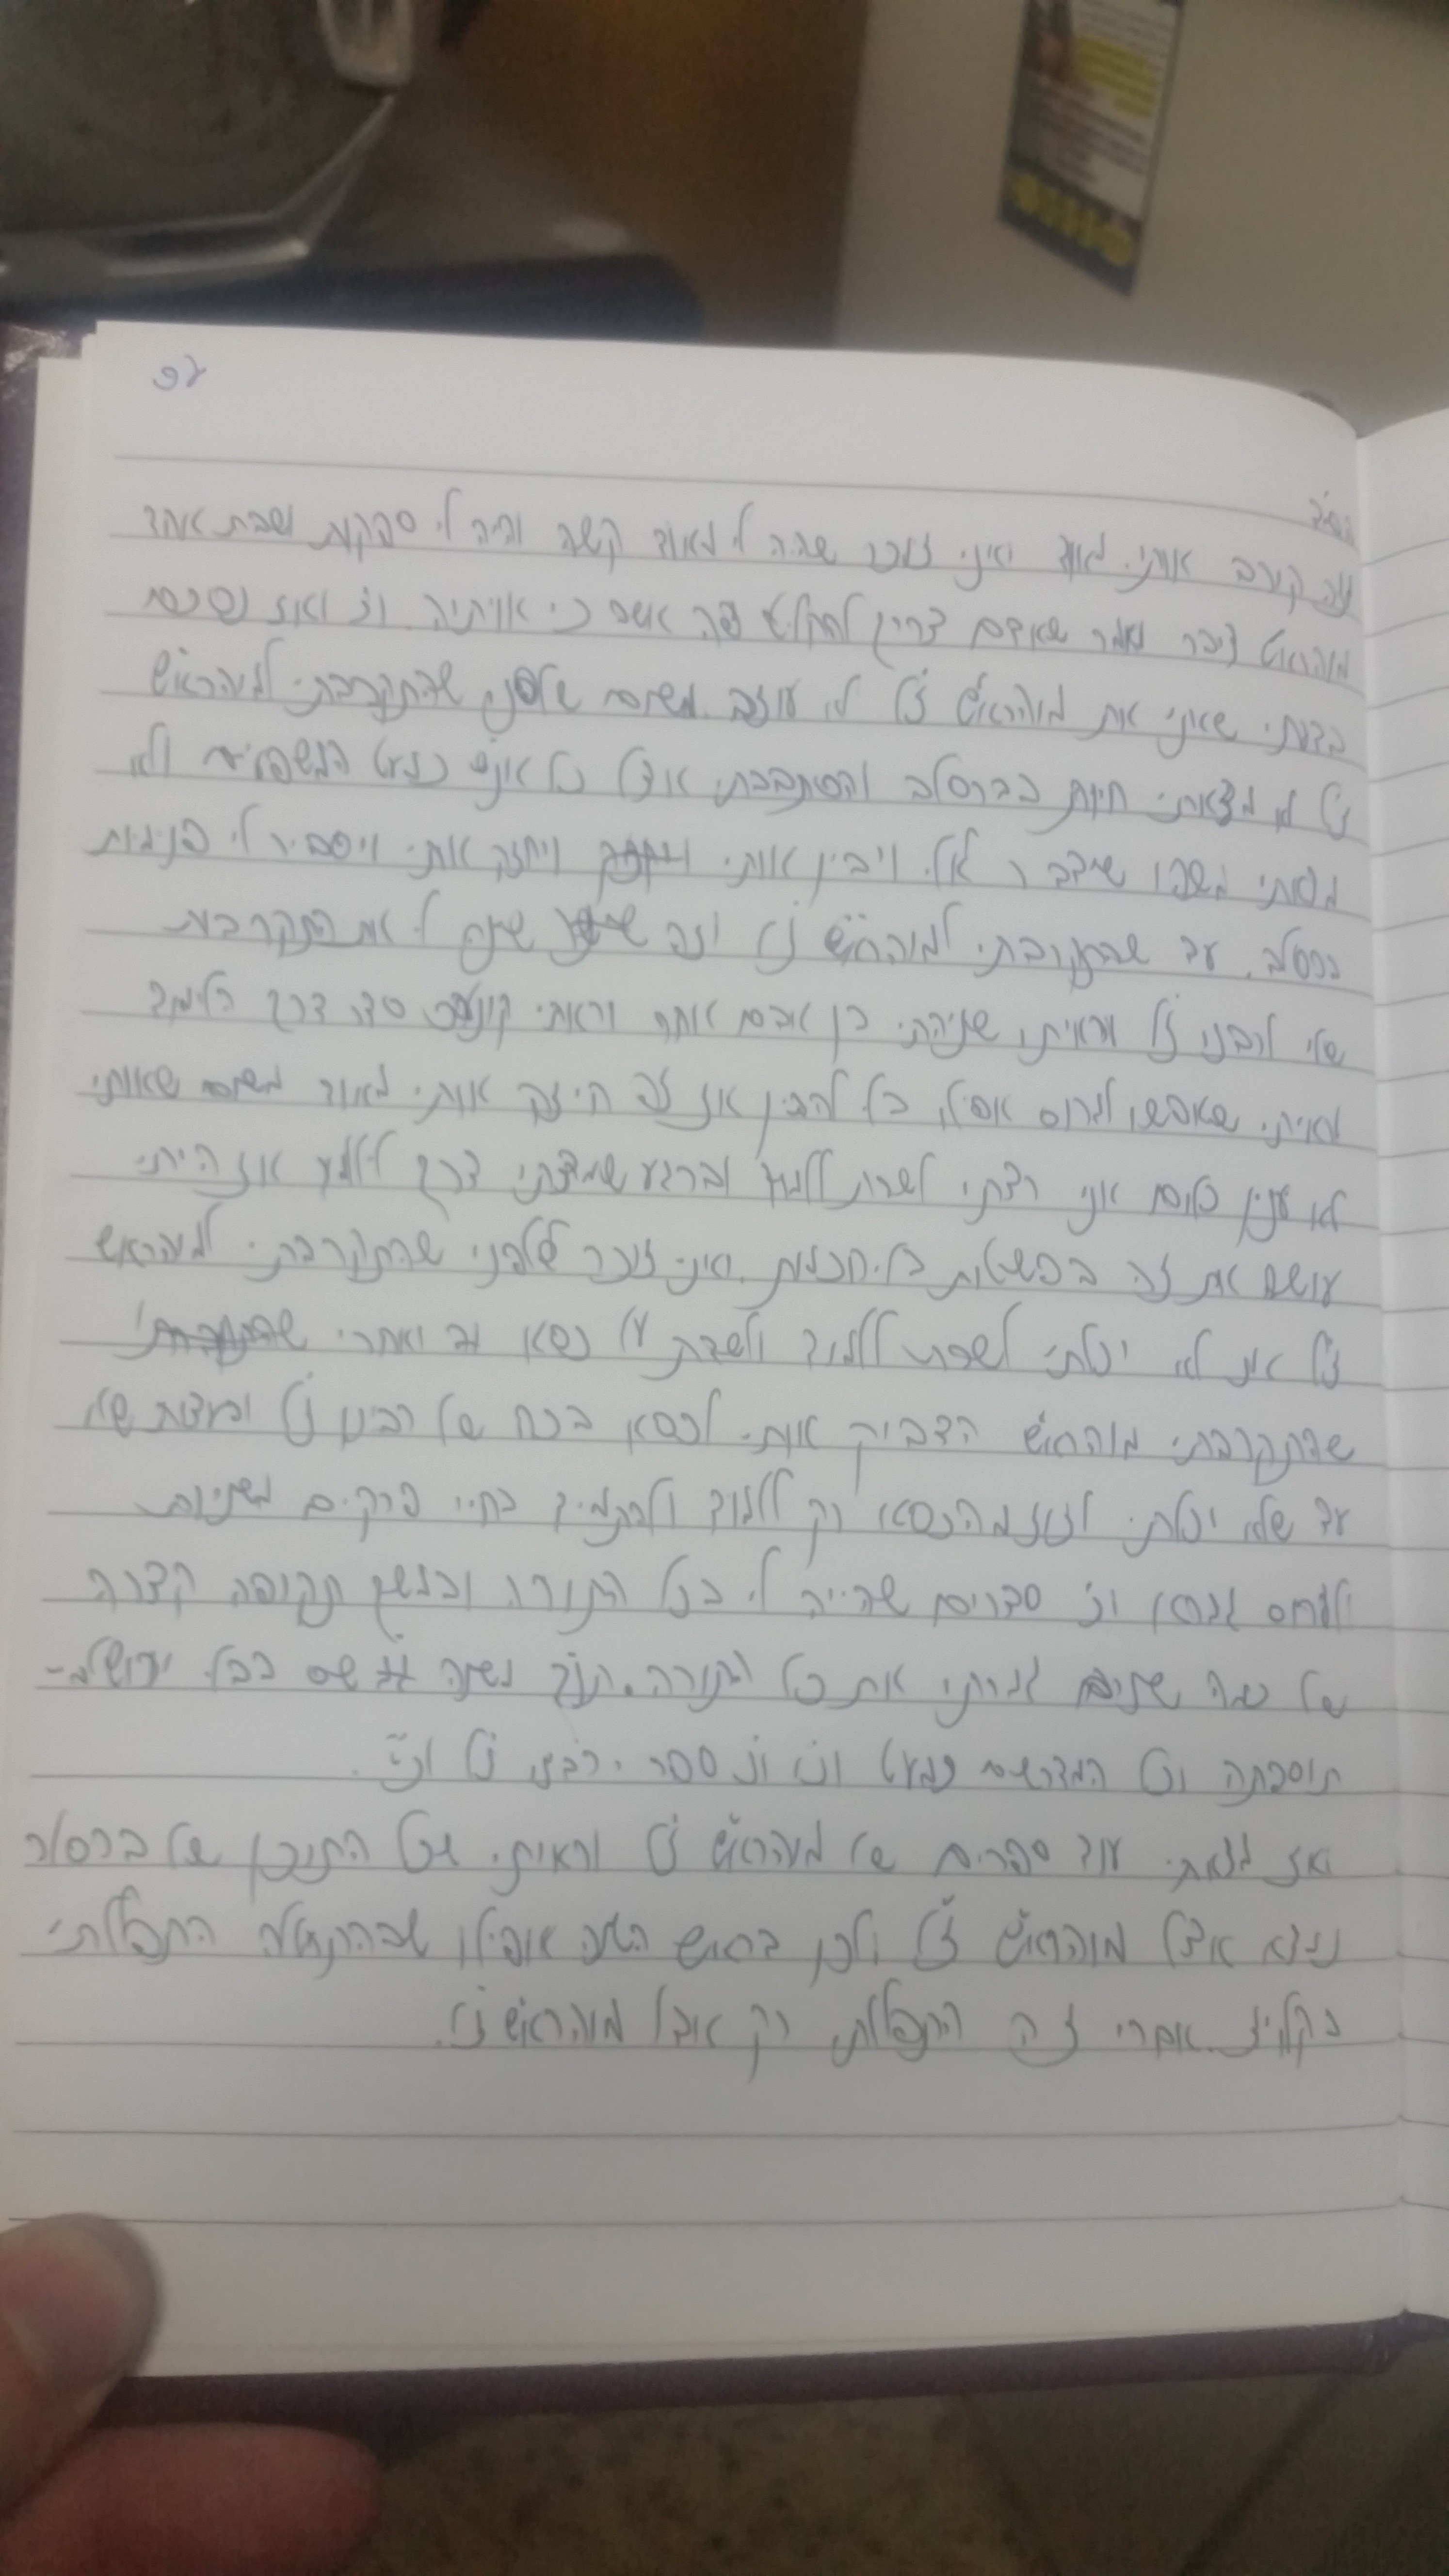 עפ
בס"ד
זה קירב אותי מאוד ואני זוכר שהיה לי מאוד קשה והיה לי ספקות ושבת אחד
מוהרא"ש דיבר ואמר שאדם צריך להחליט פה אשב כי אויתיה וכו' ואז
בדעתי שאני את מוהרא"ש ז"ל לא עוזב משום שלפני שהתקרבתי למוהרא"ש
ז"ל לא מצאתי חיות בברסלב והסתובבתי אצל כל אנ"ש כמעט המשפיעים ולא
מצאתי מישהו שידבר אלי ויבין אותי ויחזק אותי ויסביר לי פנימיות
ברסלב. עד שהתקרבתי למוהרא"ש ז"ל וזה לי את התקרבות
שלי לרבינו ז"ל וראיתי שנהיתי בן אדם אחר וראיתי סדר דרך הלימוד
ראיתי שאפשר לגרוס אפילו בלי להבין אז זה חיזק אותי מאוד משום שאותי
לא ענין כלום אני רציתי לשבת ללמוד וברגע שמצאתי דרך ללמוד אז הייתי
עושה את זה בפשיטות בלי חכמות. ואני זוכר שלפני שהתקרבתי למוהרא"ש
ז"ל אני לא יכלתי לשבת ללמוד ולשבת על כסא ואחרי
שהתקרבתי מוהרא"ש הדביק אותי לכסא בכח של רבינו ז"ל ובעצות שלו
עד שלא יכלתי לזוז מהכסא רק ללמוד ולהתמיד בח"י פרקים משניות
ולגרוס גמרא וכו' סדרים שהייה לי בכל התורה ובמשך תקופה קצרה
של כמה שנים גמרתי את כל התורה. תנ"ך משנה ש"ס בבלי ירושלמי
תוספתא וכל המדרשים כמעט וכו' וכו' ספרי רבינו ז"ל וכו'.
ואז גמרתי עוד ספרים של מוהרא"ש ז"ל וראיתי שכל התוכן של ברסלב
נמצא אצל מוהרא"ש ז"ל ולכן בראש השנה אפילו שבהתחלה התפללתי
בקלויז אחרי זה התפללתי רק אצל מוהרא"ש ז"ל.